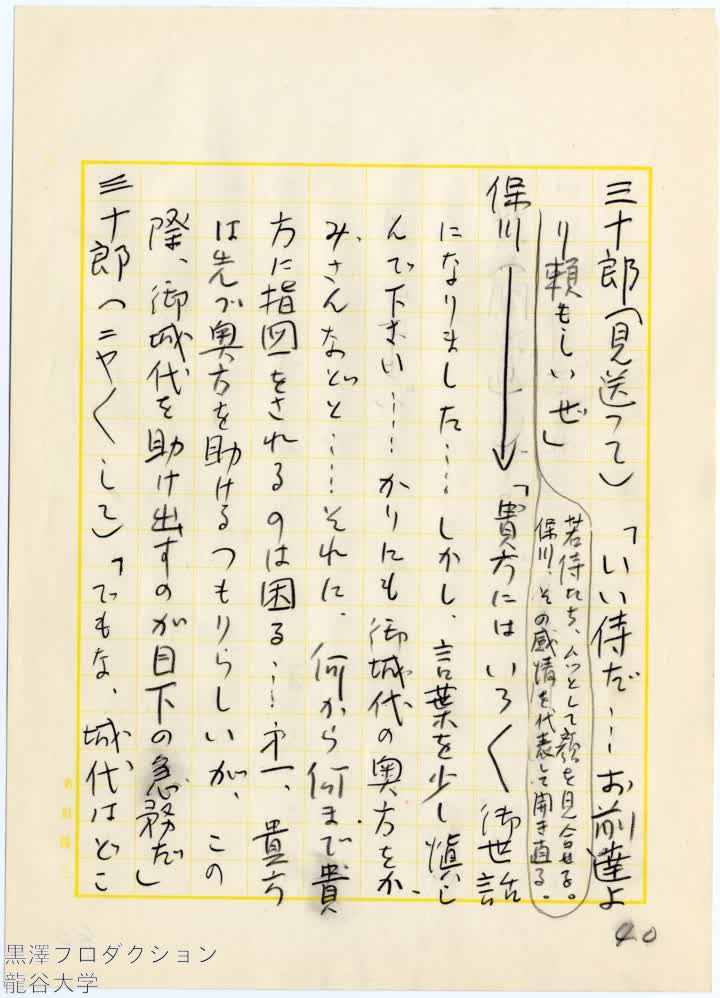 三十郎(見送って)「いい侍だ……お前達よ
り頼もしいぜ」
若侍たち、ムッとして顔を見合せる。
保川、その感情を代表して開き直る。
保川「貴方にはいろ〱御世話
になりました……しかし、言葉を少し慎し
んで下さい……かりにも御城代の奥方をか
みさんなどと……それに、何から何まで貴
方に指図をされるのは困る……才一、貴方
は先づ奥方を助けるつもりらしいが、この
際、御城代を助け出すのが目下の急務だ」
三十郎(ニヤ〱して)「でもな、城代はどこ
40
黒澤プロダクション
龍谷大学